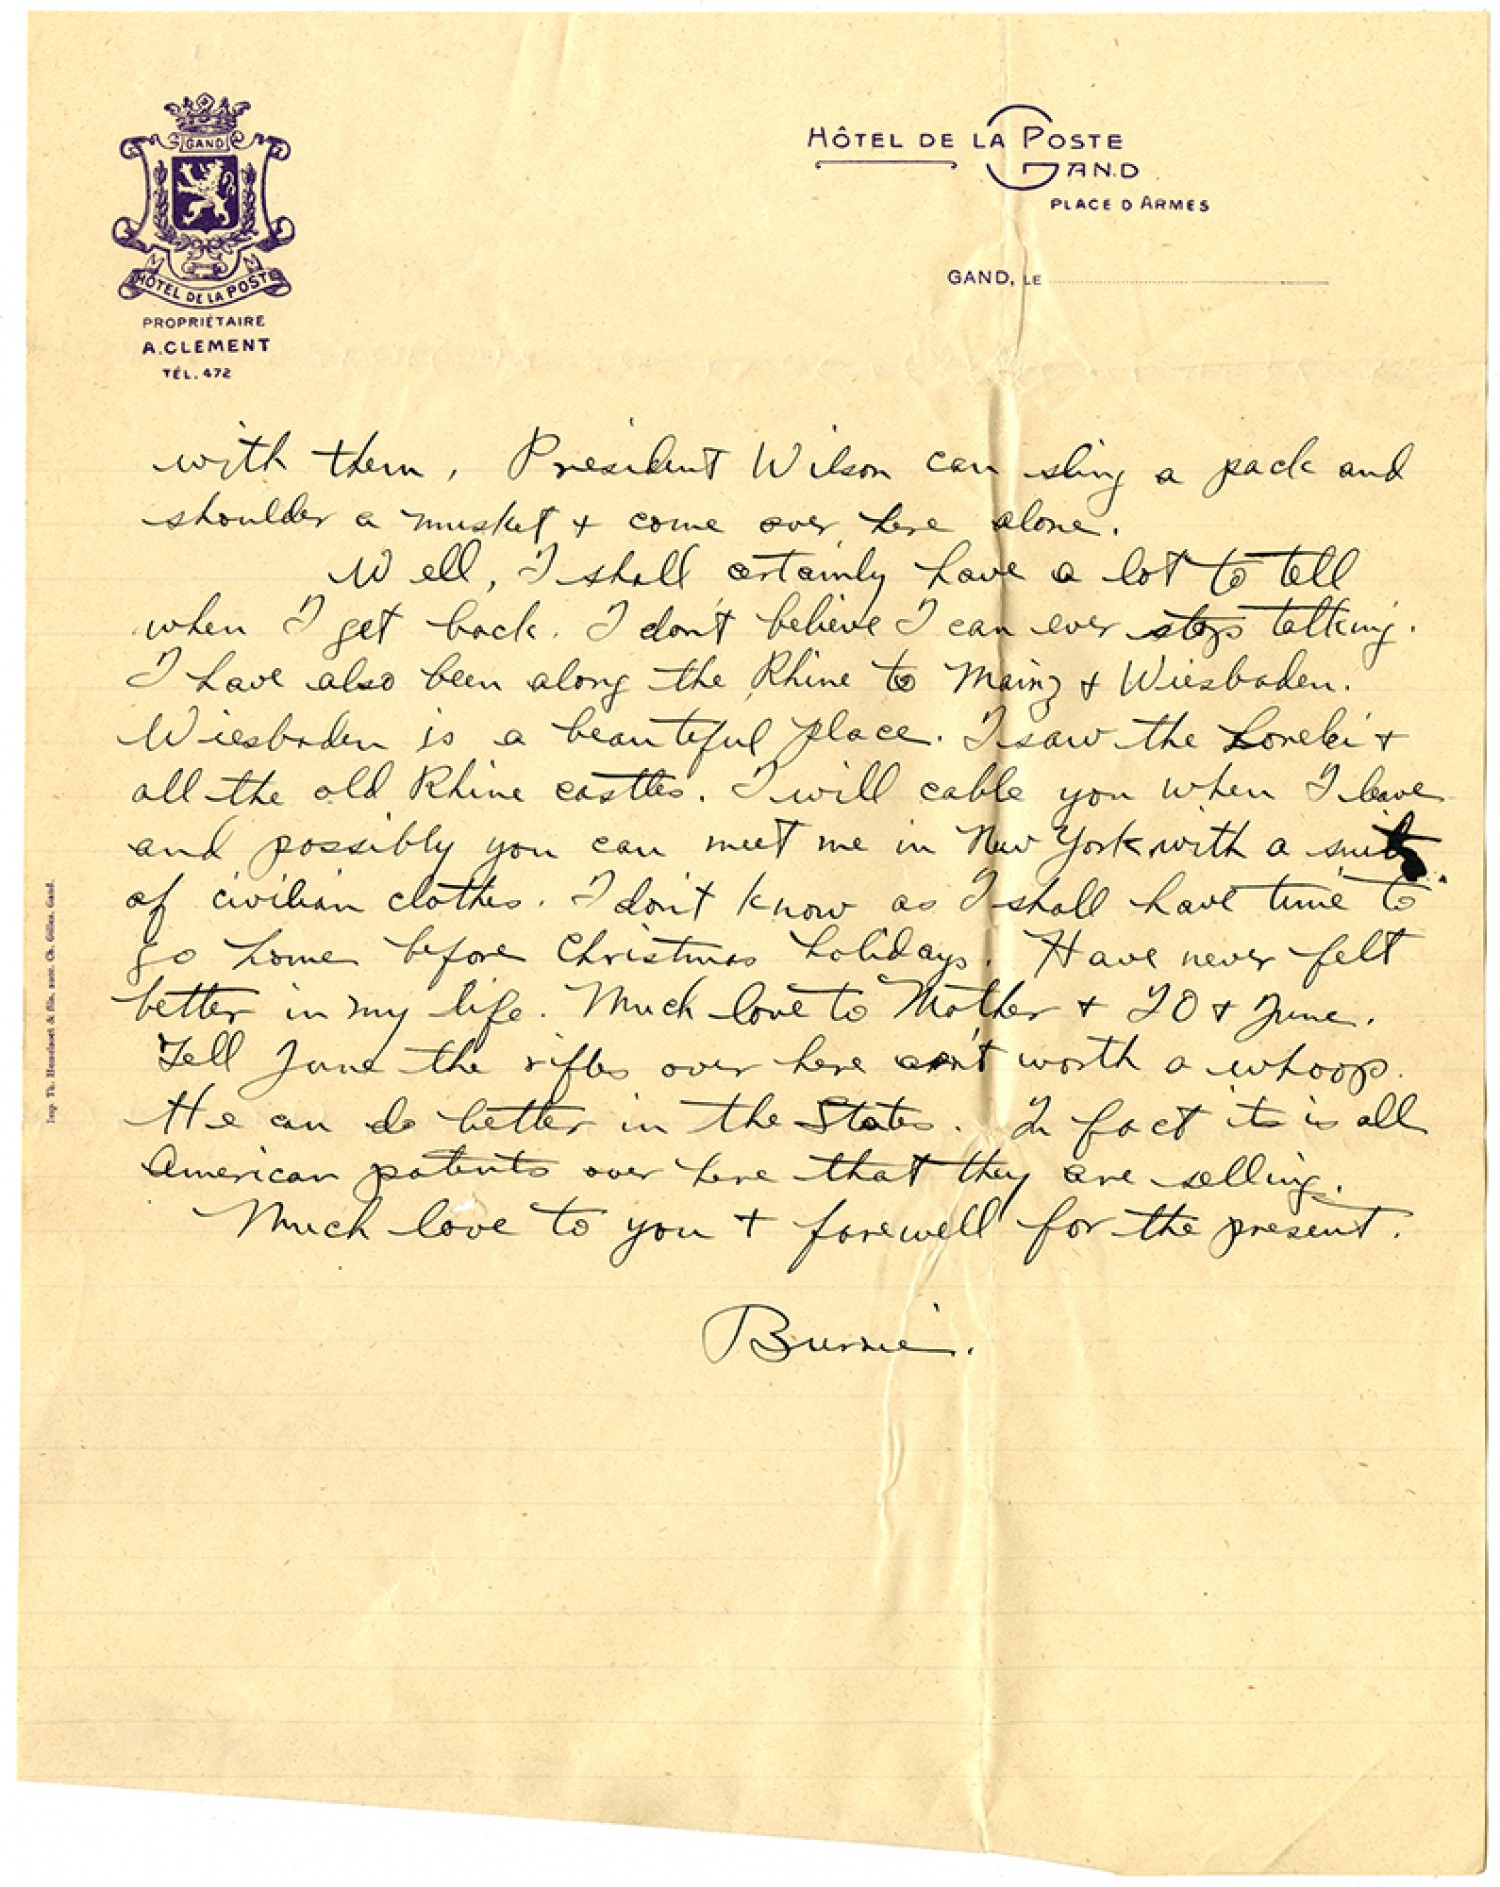 GAND
HÔTEL DE LA POSTE
PROPRIÉTAIRE
A. CLEMENT
TÉL. 472
HÔTEL DE LA POSTE
GAND
PLACE D ARMES
GAND, LE
with them, President Wilson can sling a pack and
shoulder a musket + come over here alone.
Well, I shall certainly have a lot to tell
when I get back. I don't believe I can ever stop talking.
I have also been along the Rhine to Mainz + Wiesbaden.
Wiesbaden is a beautiful place. I saw the Lorelei +
all the old Rhine castles. I will cable you when I leave
and possibly you can meet me in New York with a suit
of civilian clothes. I don't know as I shall have time to
go home before Christmas holidays. Have never felt
better in my life. Much love to Mother + JO + June.
Tell June the rifles over here ain't worth a whoop.
He can do better in the States. In fact its is all
American patents over here that they are selling.
Much love to you + farewell for the present.
Burnie.
Imp. Th. & fils, succ. Ch. Gand.